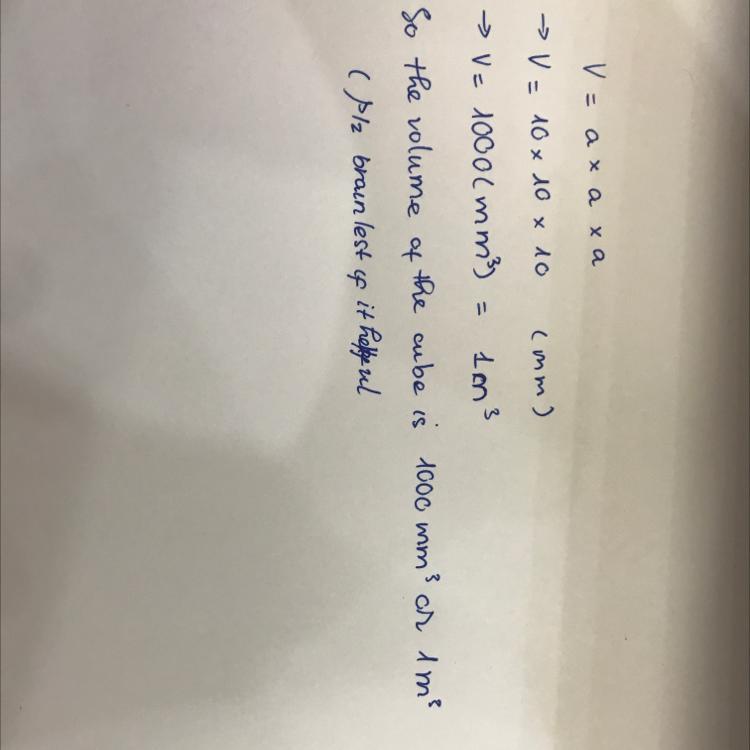 V = a × a × a
→ V = 10 × 10 × 10 (mm)
→ V = 1000 (mm³) = 1cm³
So the volume of the cube is 1000 mm³ or 1 m³
( plz brainlest if it helpful